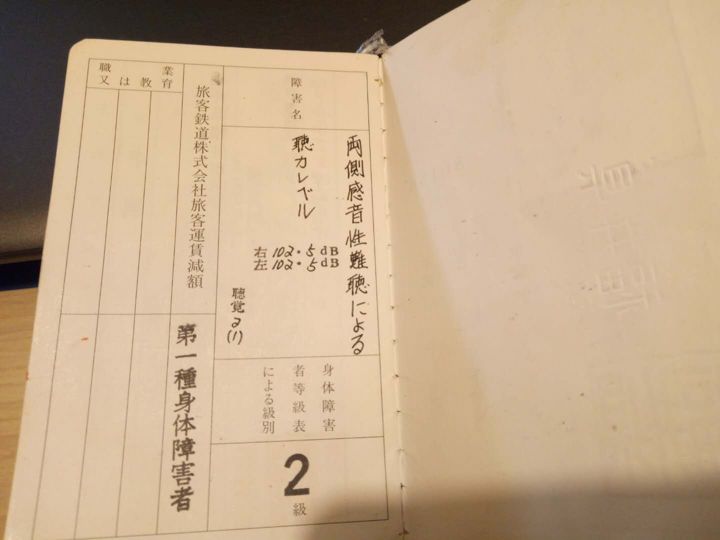 障害名
両側感音性難聴による
聴力レベル
右 102.5dB
左 102.5dB
聴覚2(1)
身体障害
者等級表
による級別
2級
旅客鉄道株式会社旅客運賃減額
第一種身体障害者
職業
又は教育